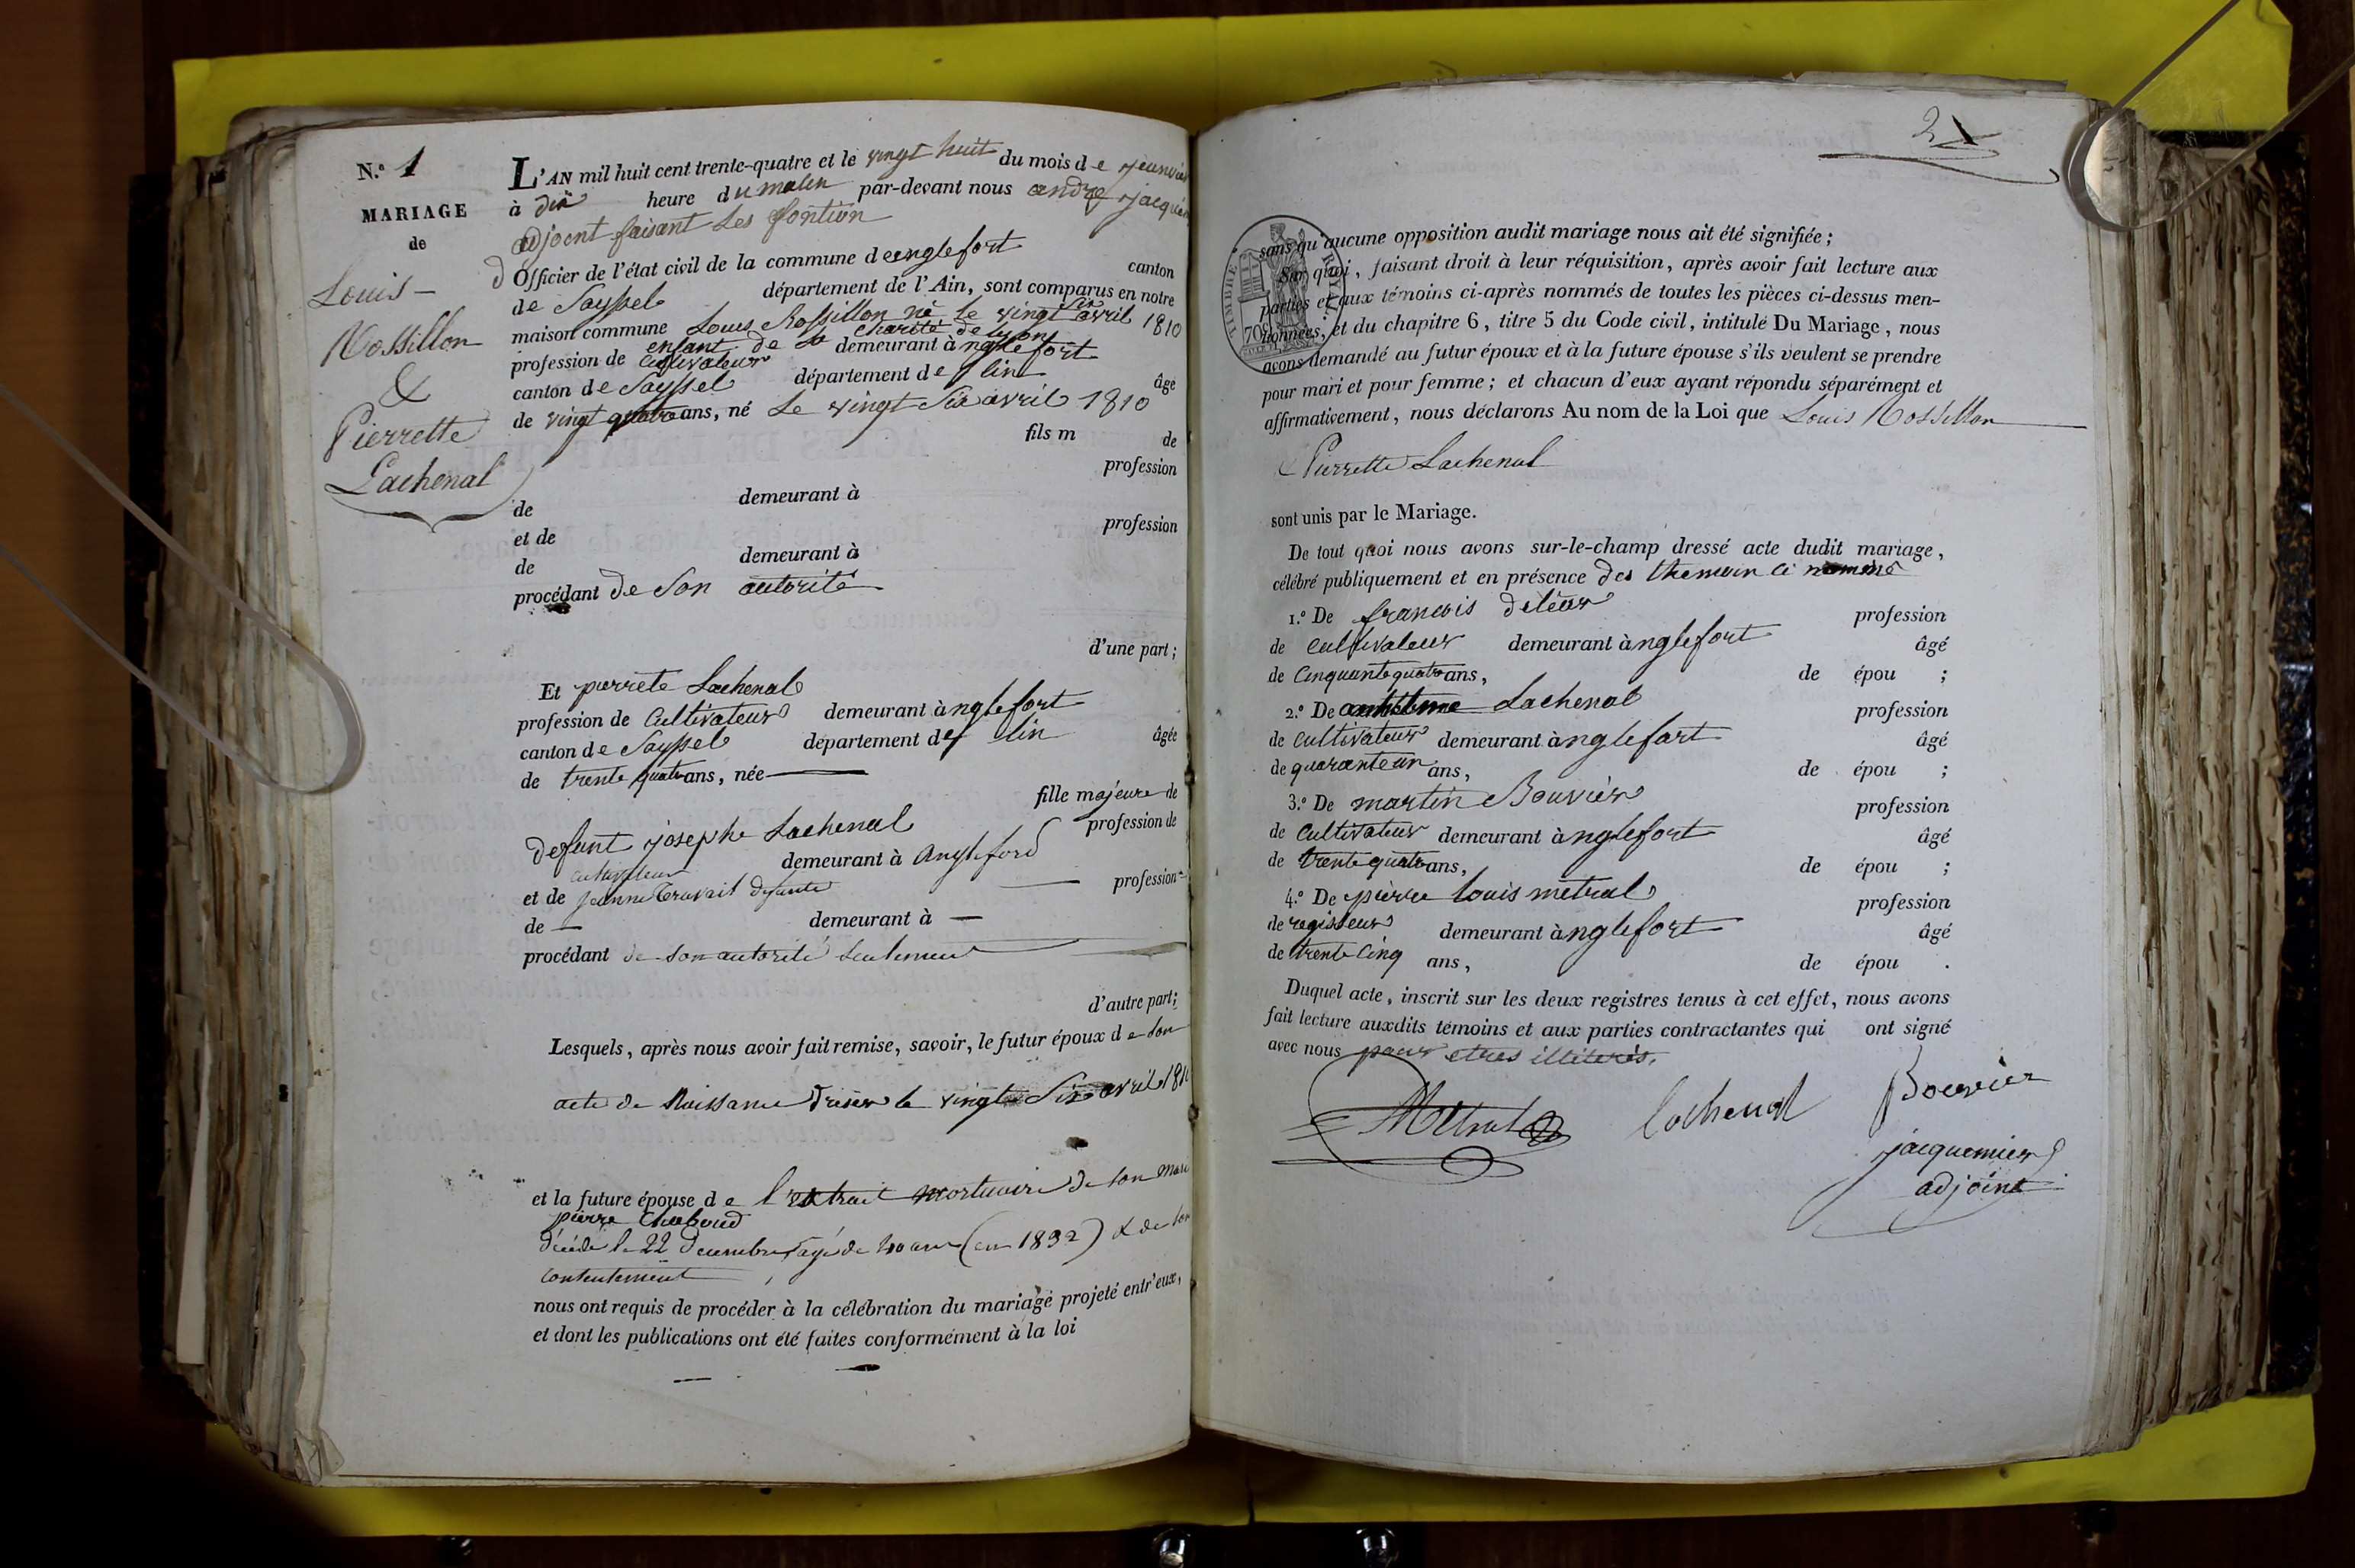 N.º 1
MARIAGE
de
Louis
Rossillon
&
Pierrette
Lachenal
L'AN mil huit cent trente-quatre et le vingt huit du mois de janvier
à dix heure du matin par-devant nous andre jacque
adjoent faisant les fontion
d Officier de l'état civil de la commune d englefort canton
de Seyssel département de l'Ain, sont comparus en notre
maison commune Louis Rossillon né le vingt six avril 1810
enfant de la charité de lyon
profession de cultivateur demeurant à nglefort
canton de Seyssel département de lin âgé
de vingt quatre ans, né le vingt Six avril 1810
fils m de
profession
de demeurant à
et de profession
de demeurant à
procédant de Son autorité
d'une part;
Et pierrete Lachenal
profession de Cultivateur demeurant à nglefort
canton de Seyssel département de lin âgée
de trente quatre ans, née
fille majeure de
defunt josephe Lachenal profession de
cultivateur demeurant à Angleford
et de jeanne defunte profession
de demeurant à
procédant de son autorité seulement
d'autre part;
Lesquels, après nous avoir fait remise, savoir, le futur époux de son
acte de Naissance le vingt Six avril 181
et la future épouse de l'extrait mortuaire de son mari
pierre Chaboud
décédé le 22 Decembre, agé de 40 ans (en 1832) & de son
contentement
nous ont requis de procéder à la célébration du mariage projeté entr'eux,
et dont les publications ont été faites conformément à la loi
2
TIMBRE ROYAL
70c
sans qu'aucune opposition audit mariage nous ait été signifiée;
Sur quoi, faisant droit à leur réquisition, après avoir fait lecture aux
parties et aux témoins ci-après nommés de toutes les pièces ci-dessus men-
tionnées, et du chapitre 6, titre 5 du Code civil, intitulé Du Mariage, nous
avons demandé au futur époux et à la future épouse s'ils veulent se prendre
pour mari et pour femme; et chacun d'eux ayant répondu séparément et
affirmativement, nous déclarons Au nom de la Loi que Louis Rossillon
& Pierrette Lachenal
sont unis par le Mariage.
De tout quoi nous avons sur-le-champ dressé acte dudit mariage,
célébré publiquement et en présence des themoin ci nommé
1.º De francois deléar profession
de cultivateur demeurant à nglefort âgé
de Cinquante quatre ans, de épou ;
2.º De anthelme Lachenal profession
de cultivateur demeurant à nglefort âgé
de quarante un ans, de épou ;
3.º De martin Bouvier profession
de cultivateur demeurant à nglefort âgé
de trente quatre ans, de épou ;
4.º De pierre louis metral profession
de regisseur demeurant à nglefort âgé
de trente Cinq ans, de épou .
Duquel acte, inscrit sur les deux registres tenus à cet effet, nous avons
fait lecture auxdits témoins et aux parties contractantes qui ont signé
avec nous pour etres illiterés.
Metral Lachenal Bouvier
jacquemier
adjoint